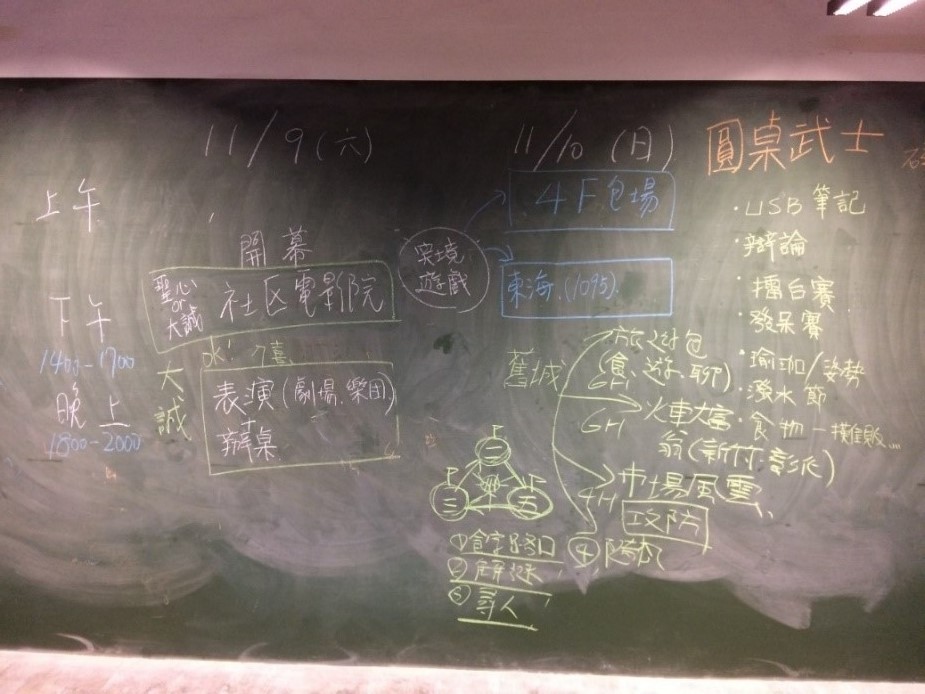 11/9(六)
11/10 (日)
圓桌武士
上午
下午
1400-1700
晚上
1800-2000
開幕
聖心
or
大誠
社区電影院
OK!
大誠
表演(劇場、樂団)
辦桌
実境
遊戲
4F包場
東海(1095)
舊城
(食、遊、聊)
6H
火車大富
翁(新竹、彰派)
4H
市場風雲
攻防
④
①
②解謎
③尋人
・USB筆記
・辯論
擂台賽
・發呆賽
・瑜珈/姿勢
・潑水節
・食物一